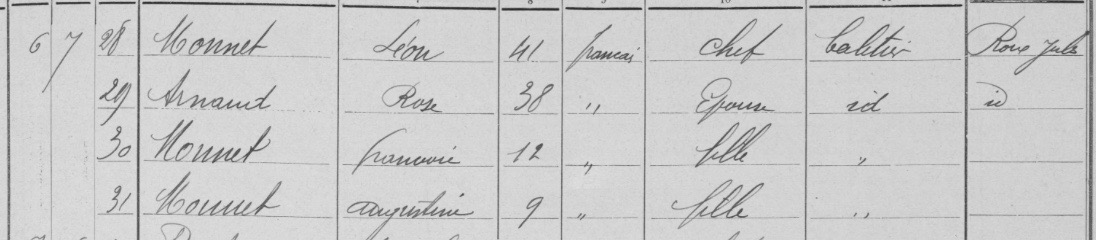 6 7 28 Monnet Léon 41 francais chef Roux Jules
29 Arnaud Rose 38 " Epouse id id
30 Monnet 12 " fille "
31 Monnet augustine 9 " fille "